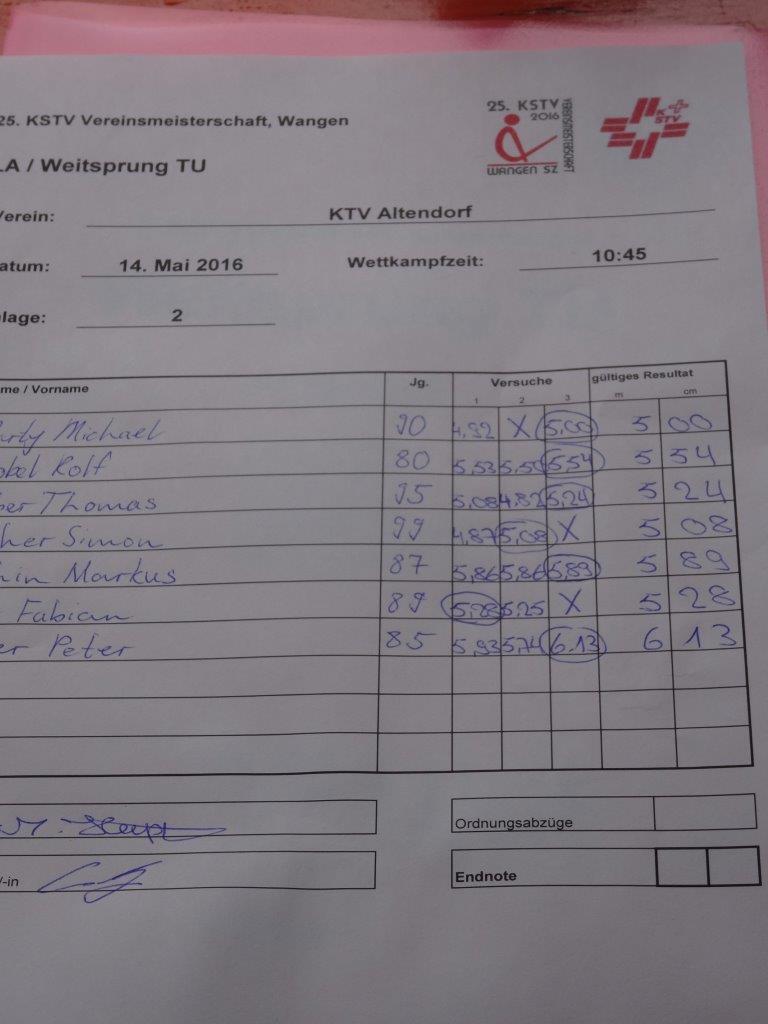 25. KSTV Vereinsmeisterschaft, Wangen
25. KSTV
2016
VEREINSMEISTERSCHAFT
WANGEN SZ
K
STV
LA / Weitsprung TU
Verein: KTV Altendorf
atum: 14. Mai 2016 Wettkampfzeit: 10:45
nlage: 2
me / Vorname Jg. Versuche gültiges Resultat
1 2 3 m cm
Michael 90 4,92 X 5,00 5 00
Rolf 80 5,53 5,50 5,54 5 54
Thomas 95 5,08 4,82 5,24 5 24
Simon 99 4,87 5,08 X 5 08
Markus 87 5,86 5,86 5,89 5 89
Fabian 89 5,28 5,25 X 5 28
er Peter 85 5,93 5,74 6.13 6 13
Ordnungsabzüge
/-in Endnote